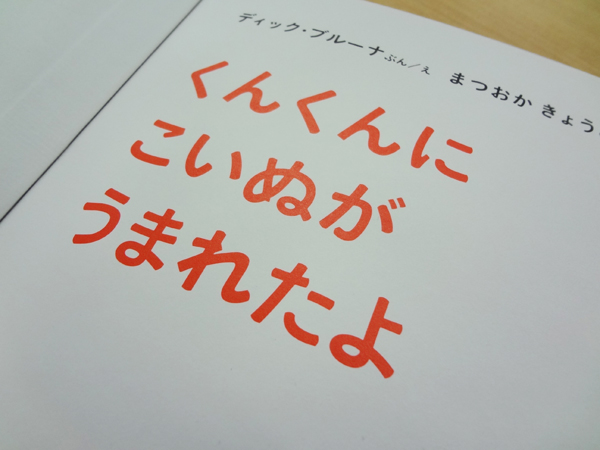 ディック・ブルーナ ぶん/え まつおか きょう
くんくんに
こいぬが
うまれたよ